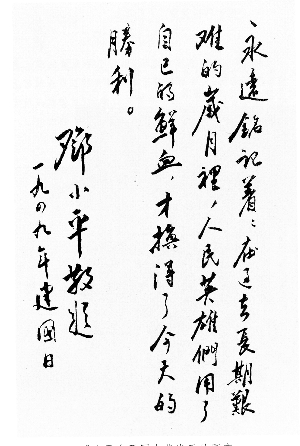 永遠銘記着：在長期艱
难的歲月裡，人民英雄們用了
自己的鮮血，才換得了今天的
勝利。
鄧小平敬題
一九四九年建國日